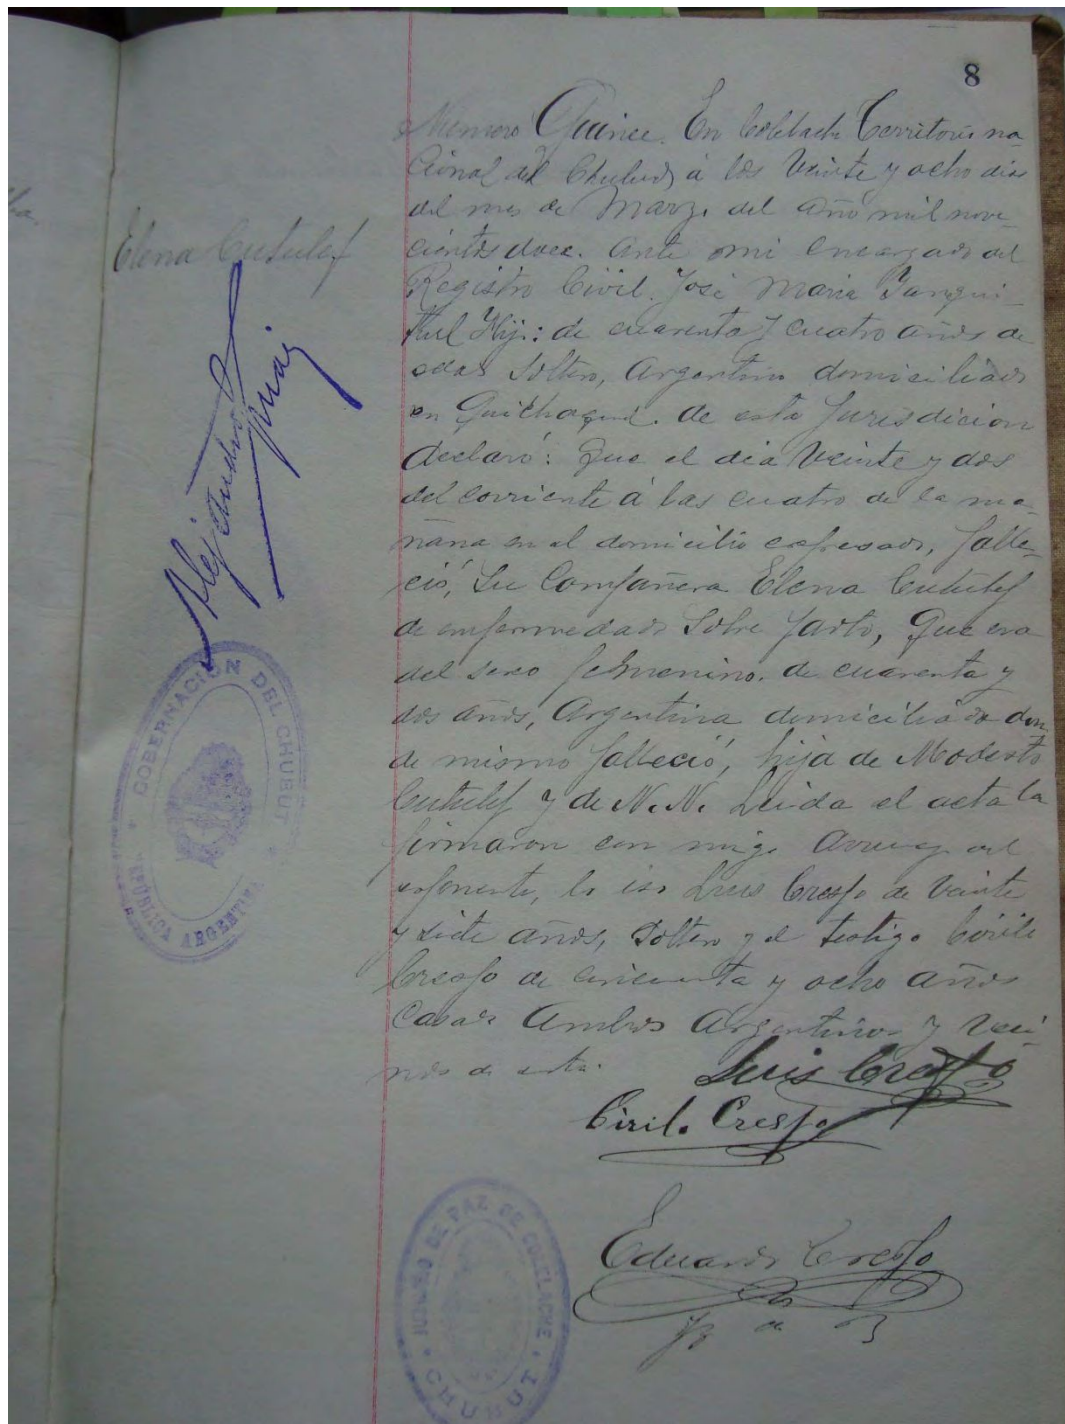 8
Elena Cutulef
Numero Quince. En Colelache Territorio na-
cional del Chubut, á los Veinte y ocho dias
del mes de Marzo del año mil nove-
cientos doce. Ante mi Encargado del
Registro Civil. José Maria
Hijo: de cuarenta y cuatro años de
edad Soltero, Argentino domiciliado
en de esta Jurisdicion
declaró: Que el dia Veinte y dos
del corriente á las cuatro de la ma-
ñana en el domicilio espresado, falle-
ció, Su Compañera Elena Cutulef
de enfermedad Sobre parto, Que era
del sexo femenino. de cuarenta y
dos años, Argentina domiciliada don-
de mismo falleció, hija de Modesto
Cutulef y de N.N. Leida el acta la
firmaron con migo Aruego del
esponente, lo iso Luis Crespo de Veinte
y siete años, Soltero y el testigo Cirilo
Crespo de cincuenta y ocho años
Casado Ambos Argentinos y Veci-
nos de esta.
Luis Crespo
Cirilo Crespo
Eduardo Crespo
J de P
Alejandro
GOBERNACION DEL CHUBUT
REPÚBLICA ARGENTINA
JUZGADO DE PAZ DE COLELACHE
CHUBUT